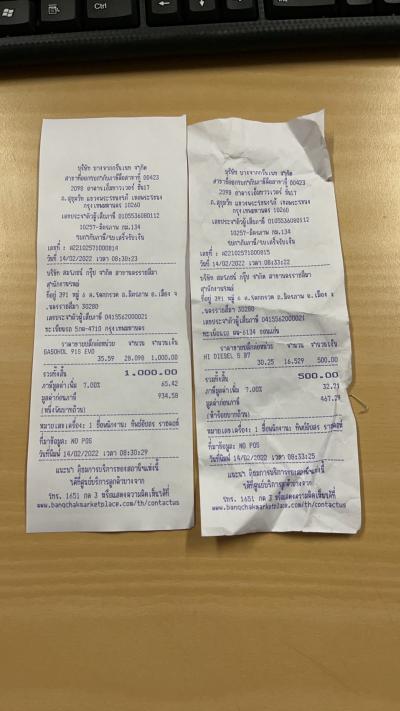 บริษัท บางจากกรีนเนท จำกัด
สาขาที่ออกใบกำกับภาษีคือสาขาที่ 00423
2098 อาคารเอ็มทาวเวอร์ ชั้น17
ถ.สุขุมวิท แขวงพระโขนงใต้ เขตพระโขนง
กรุงเทพมหานคร 10260
เลขประจำตัวผู้เสียภาษี 0105536080112
10257-มิตรภาพ กม.134
ใบกำกับภาษี/ใบเสร็จรับเงิน
เลขที่ :
วันที่ 14/02/2022 เวลา 08:30:23
ที่อยู่ 391 หมู่
.นครราชสีมา 30280
เลขประจำตัวผู้เสียภาษี 0415562000021
กรุงเทพมหานคร
ราคาขายปลีกต่อหน่วย จำนวน จำนวนเงิน
GASOHOL 91S EVO
35.59 28.098 1,000.00
รวมทั้งสิ้น 1,000.00
ภาษีมูลค่าเพิ่ม 7.00% 65.42
มูลค่าก่อนภาษี 934.58
(หนึ่งพันบาทถ้วน)
หมายเลขเครื่อง: 1 ชื่อพนักงาน:
ที่มาข้อมูล: NO POS
วันที่พิมพ์ 14/02/2022 เวลา 08:30:29
แนะนำ ติชมการบริการของสถานีแห่งนี้
ได้ที่ศูนย์บริการลูกค้าบางจาก
โทร. 1651 กด 3 หรือแสดงความคิดเห็นได้ที่
www.bangchakmarketplace.com/th/contactus
บริษัท บางจากกรีนเนท จำกัด
สาขาที่ออกใบกำกับภาษีคือสาขาที่ 00423
2098 อาคารเอ็มทาวเวอร์ ชั้น17
ถ.สุขุมวิท แขวงพระโขนงใต้ เขตพระโขนง
กรุงเทพมหานคร 10260
เลขประจำตัวผู้เสียภาษี 0105536080112
10257-มิตรภาพ กม.134
ใบกำกับภาษี/ใบเสร็จรับเงิน
เลขที่ :
วันที่ 14/02/2022 เวลา 08:33:22
ที่อยู่ 391 หมู่
.นครราชสีมา 30280
เลขประจำตัวผู้เสียภาษี 0415562000021
ขอนแก่น
ราคาขายปลีกต่อหน่วย จำนวน จำนวนเงิน
HI DIESEL S B7
30.25 16.529 500.00
รวมทั้งสิ้น 500.00
ภาษีมูลค่าเพิ่ม 7.00% 32.71
มูลค่าก่อนภาษี 467.29
(ห้าร้อยบาทถ้วน)
หมายเลขเครื่อง: 1 ชื่อพนักงาน:
ที่มาข้อมูล: NO POS
วันที่พิมพ์ 14/02/2022 เวลา 08:33:25
แนะนำ ติชมการบริการของสถานีแห่งนี้
ได้ที่ศูนย์บริการลูกค้าบางจาก
โทร. 1651 กด 3 หรือแสดงความคิดเห็นได้ที่
www.bangchakmarketplace.com/th/contactus